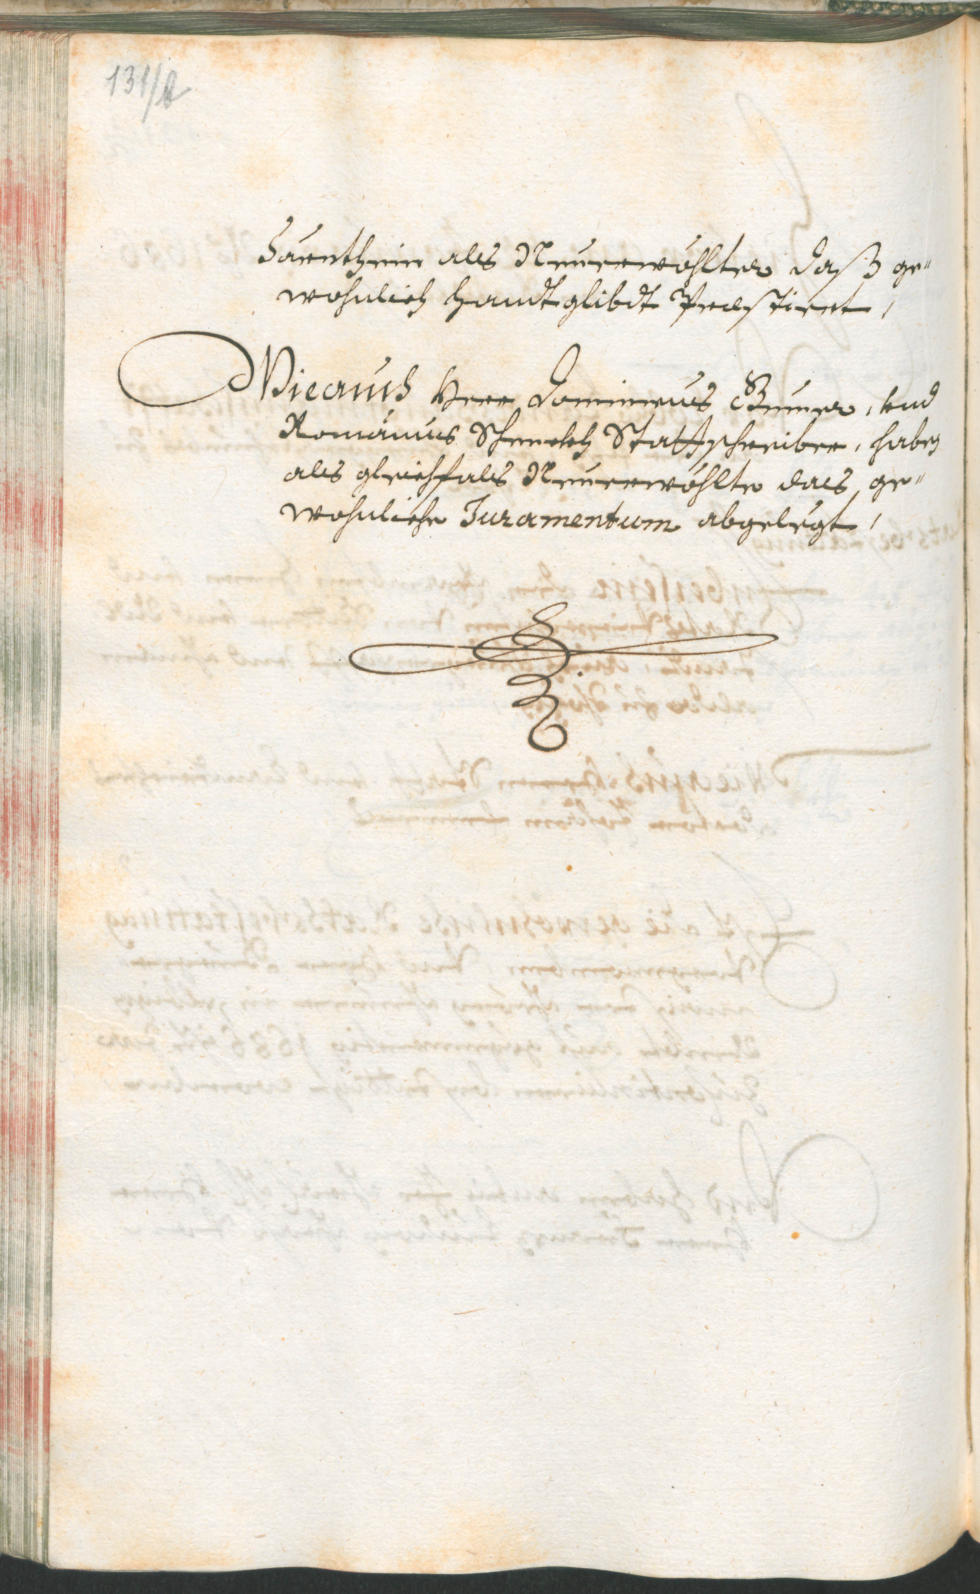 131/b
Särntheim als Neuerwöhlter daß ge¬
wohnlich Handtglibdt Præstiert,
Hierauß Herr Dominicus , vnd
Románus Schenckh Stattschreiber, haben
als gleichfals Neuerwöhlte das ge¬
wohnliche Juramentum abgelegt,